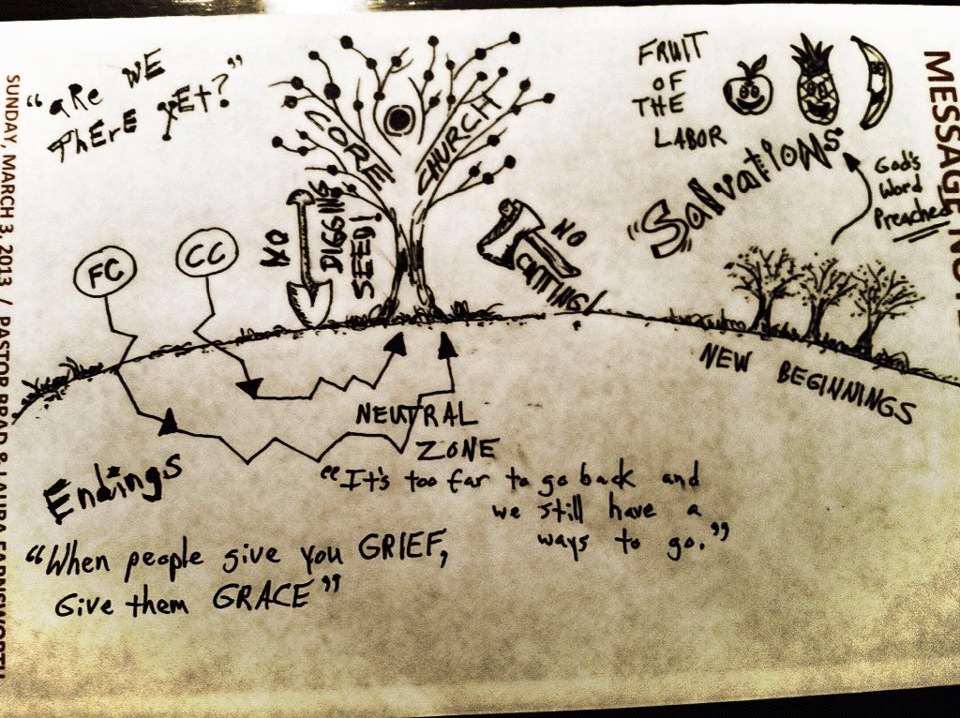 "aRe WE
thErE yEt?"
CORE
CHURCH
FRUIT
OF
THE
LABOR
"SalvatioNs"
God's
Word
Preached
FC
CC
NO
DIGGING
SEED!
NO
CUTTING!
NEW BEGINNINGS
NEUTRAL
ZONE
Endings
"It's too far to go back and
we still have a
ways to go."
"When people give you GRIEF,
Give them GRACE"
SUNDAY, MARCH 3, 2013 / PASTOR BRAD & LAURA FARNSWORTH
MESSAGE